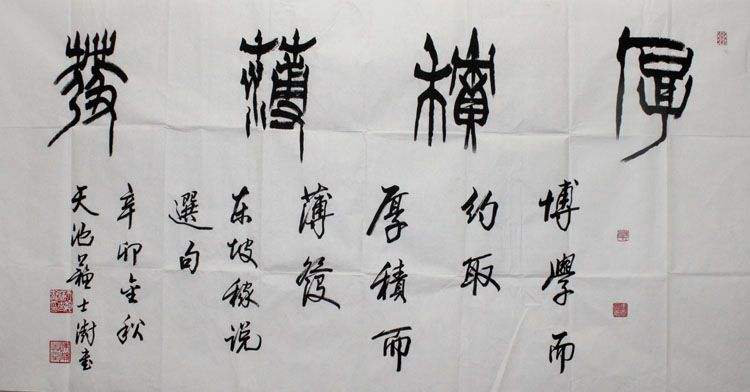 厚積薄發
博學而
約取
厚積而
薄發
東坡稼说
選句
辛卯金秋
天池蘇士澍書